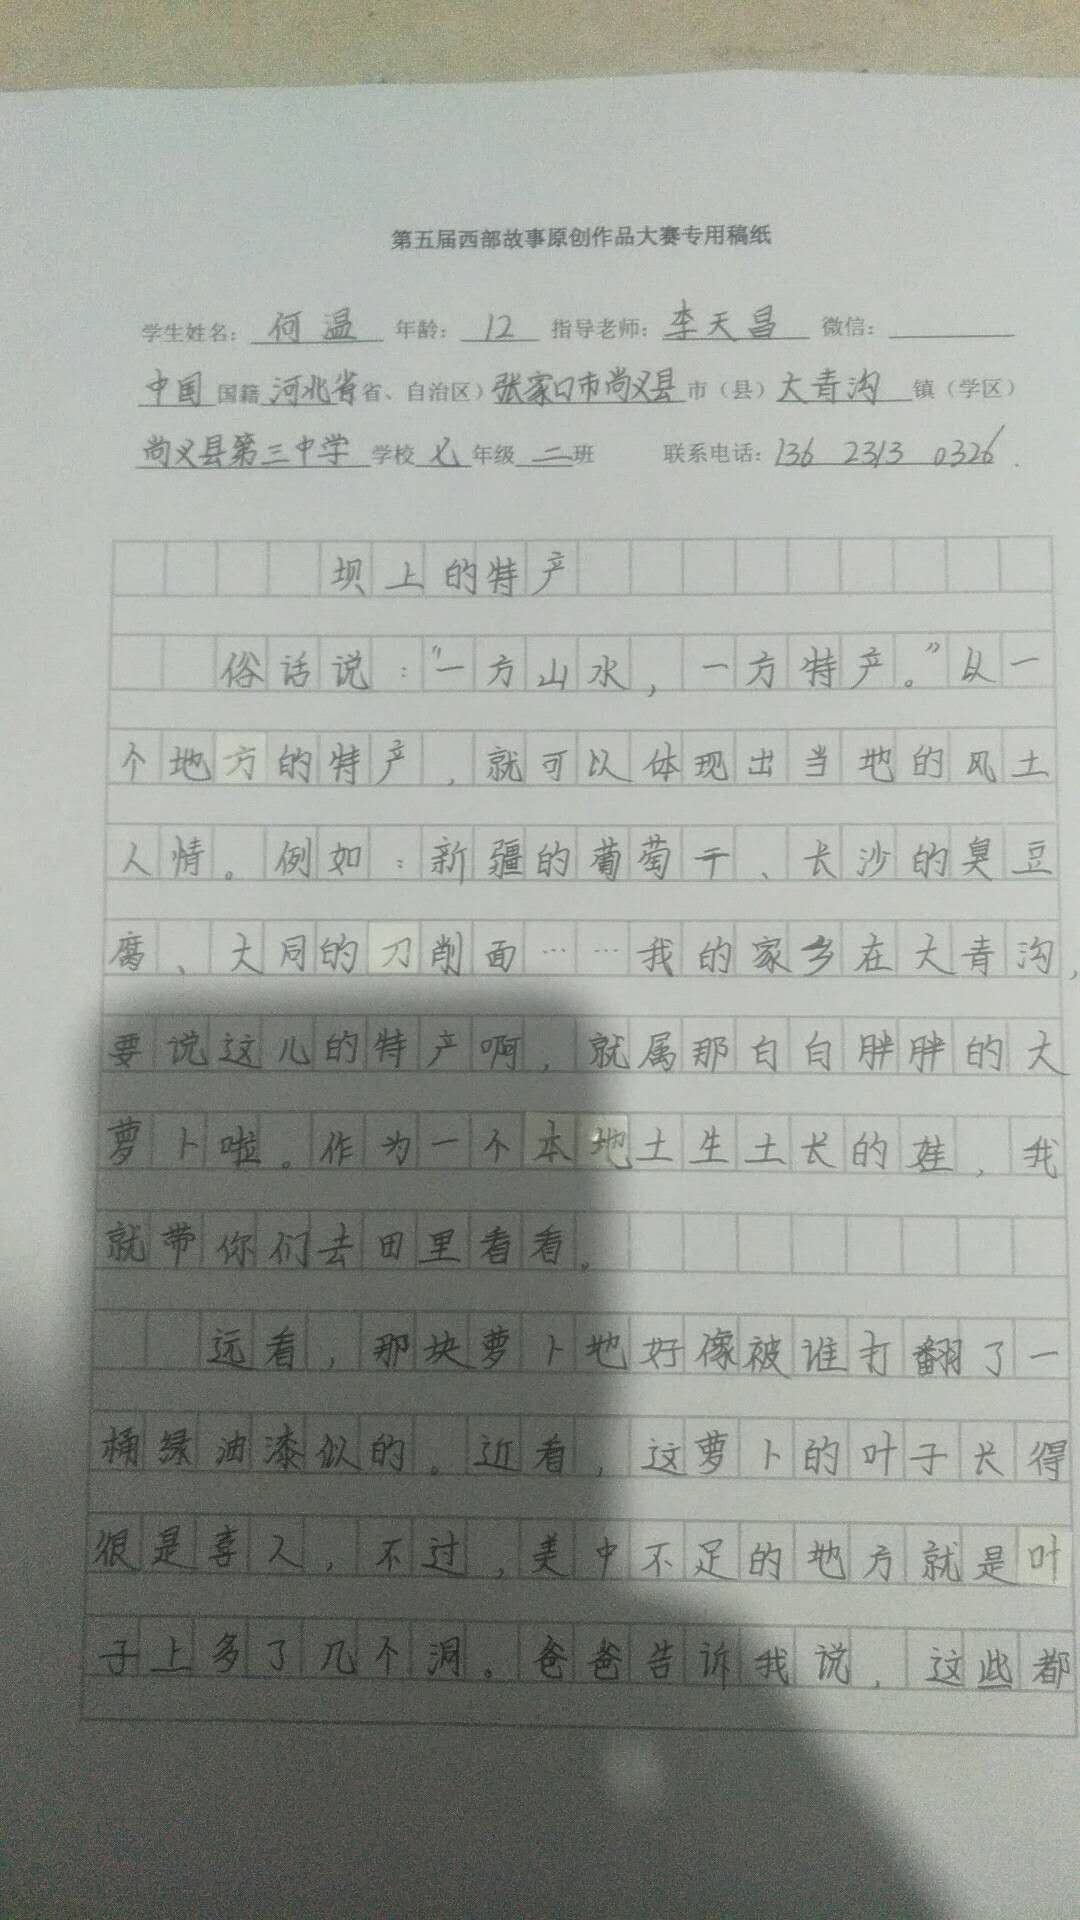 第五届西部故事原创作品大赛专用稿纸
学生姓名：何温 年龄：12 指导老师：李天昌 微信：
中国国籍 河北省省、自治区）张家口市尚义县市（县）大青沟镇（学区）
尚义县第三中学学校七年级二班 联系电话：136 2313 0326
坝上的特产
俗话说：“一方山水，一方特产。”从一
个地方的特产，就可以体现出当地的风土
人情。例如：新疆的葡萄干、长沙的臭豆
腐、大同的刀削面……我的家乡在大青沟，
要说这儿的特产啊，就属那白白胖胖的大
萝卜啦。作为一个本地土生土长的娃，我
就带你们去田里看看。
远看，那块萝卜地好像被谁打翻了一
桶绿油漆似的。近看，这萝卜的叶子长得
很是喜人，不过，美中不足的地方就是叶
子上多了几个洞。爸爸告诉我说，这些都